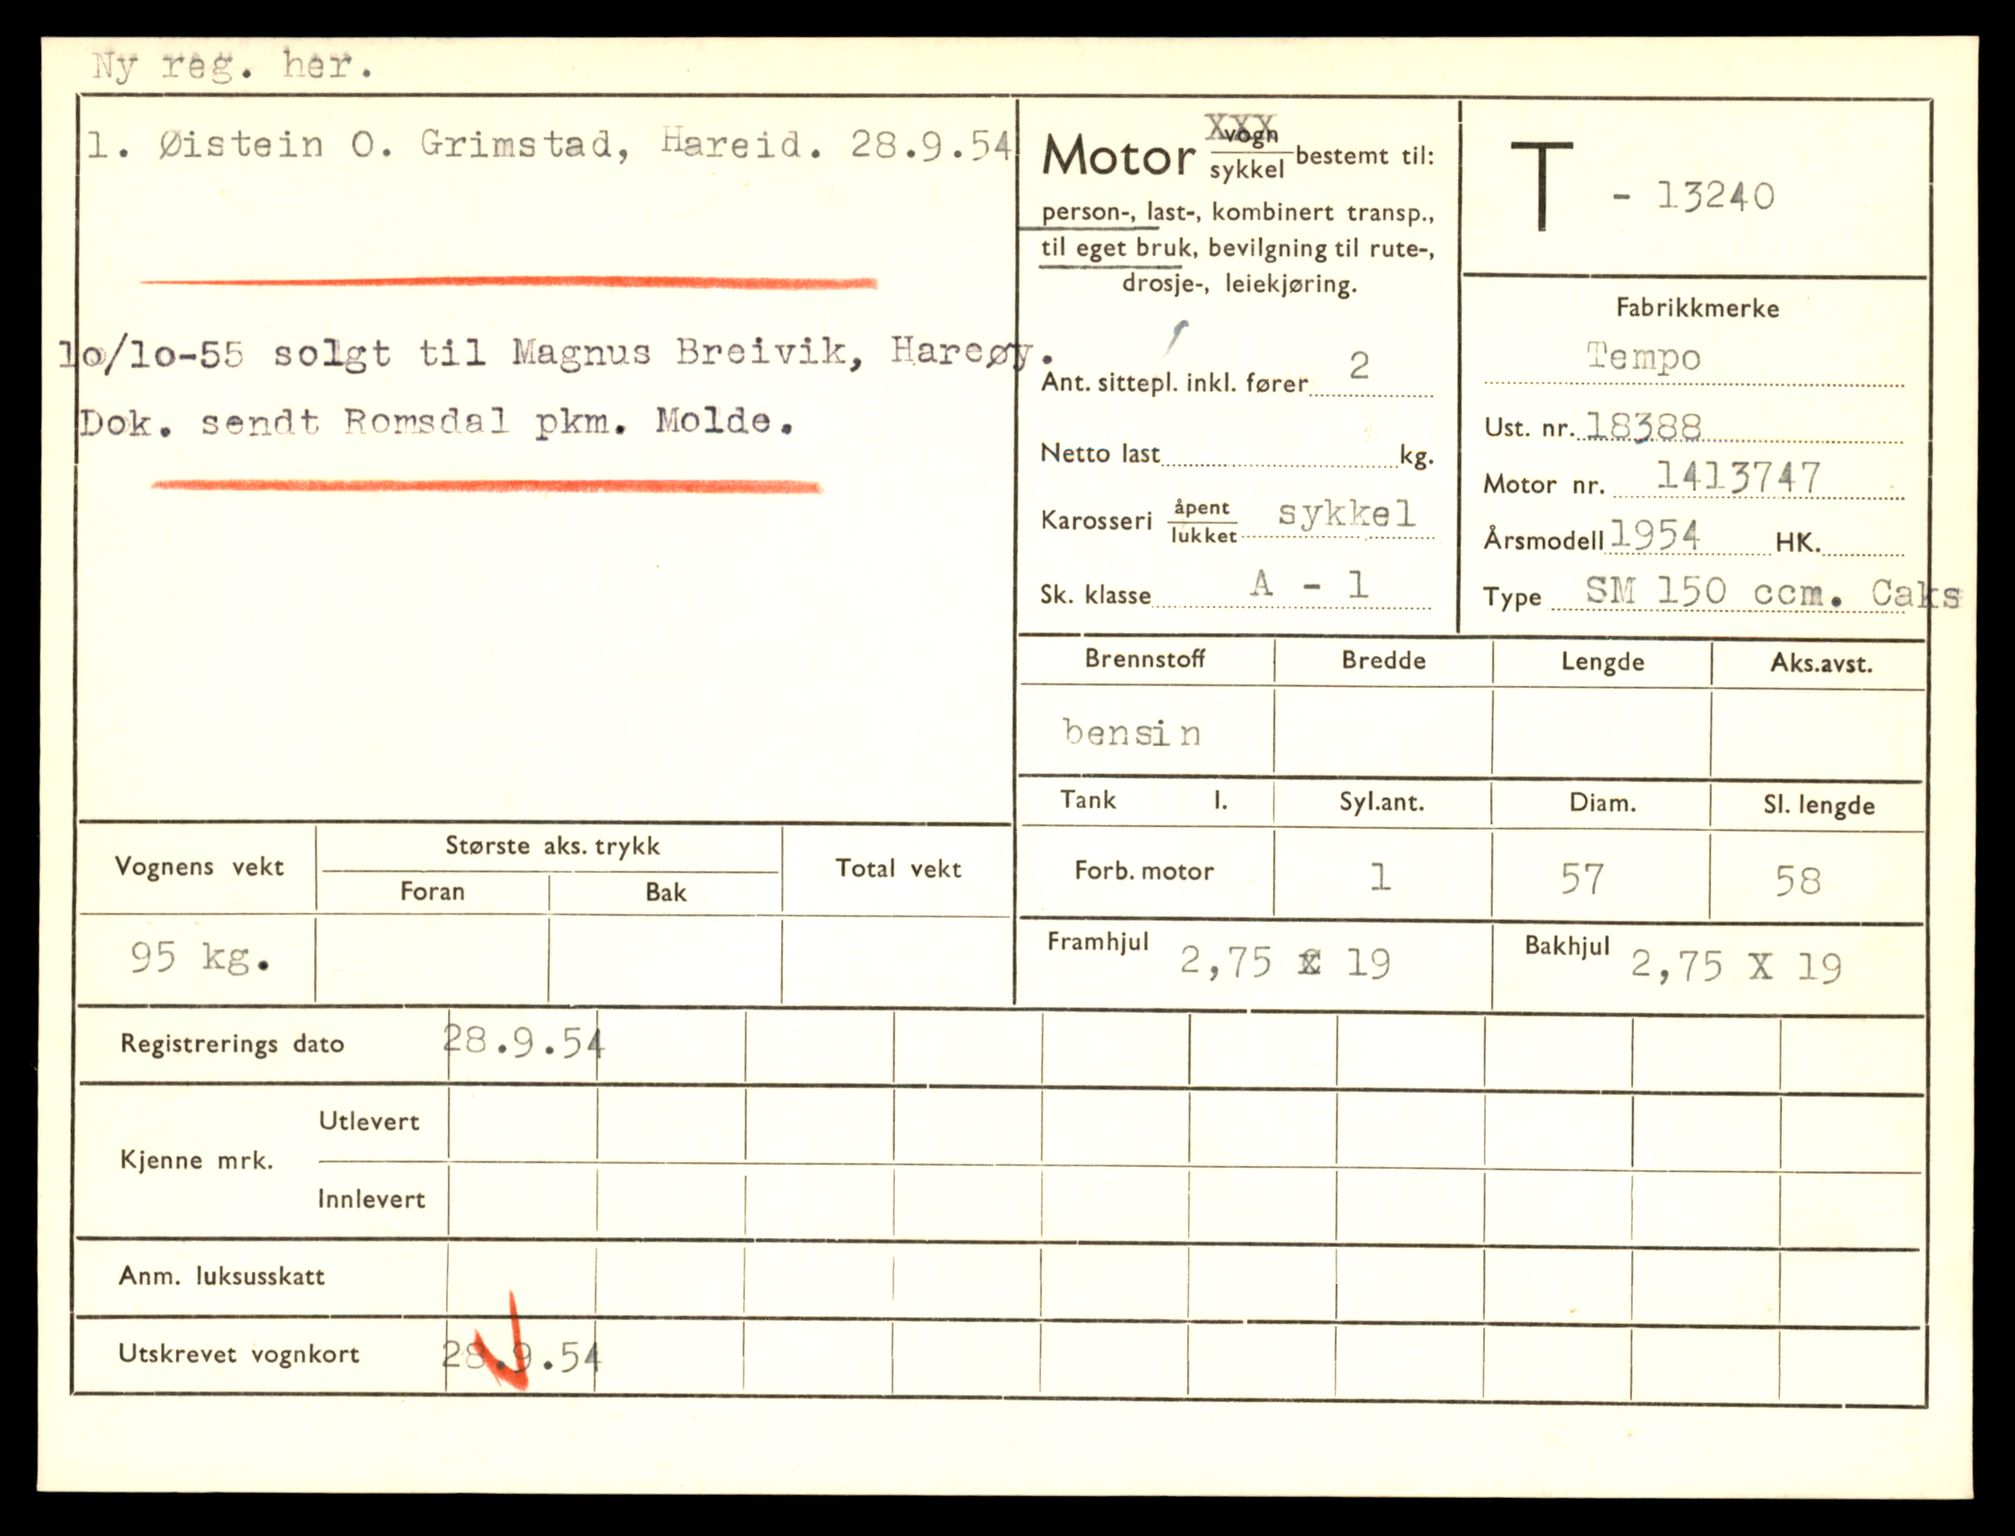 Ny reg. her.
1. Øistein O. Grimstad, Hareid. 28.9.54
lo/lo-55 solgt til Magnus Breivik, Harøy.
Dok. sendt Romsdal pkm. Molde.
Motor vogn/sykkel bestemt til:
XXX
person-, last-, kombinert transp.,
til eget bruk, bevilgning til rute-,
drosje-, leiekjøring.
Ant. sittepl. inkl. fører 2
Netto last kg.
Karosseri åpent/lukket sykkel
Sk. klasse A - 1
T - 13240
Fabrikkmerke
Tempo
Ust. nr. 18388
Motor nr. 1413747
Årsmodell 1954 HK.
Type SM 150 ccm. Caks
Brennstoff Bredde Lengde Aks.avst.
bensin
Tank l. Syl.ant. Diam. Sl. lengde
Forb. motor 1 57 58
Framhjul 2,75 x 19 Bakhjul 2,75 X 19
Vognens vekt Største aks. trykk Total vekt
Foran Bak
95 kg.
Registrerings dato 28.9.54
Kjenne mrk. Utlevert
Innlevert
Anm. luksusskatt
Utskrevet vognkort 28.9.54